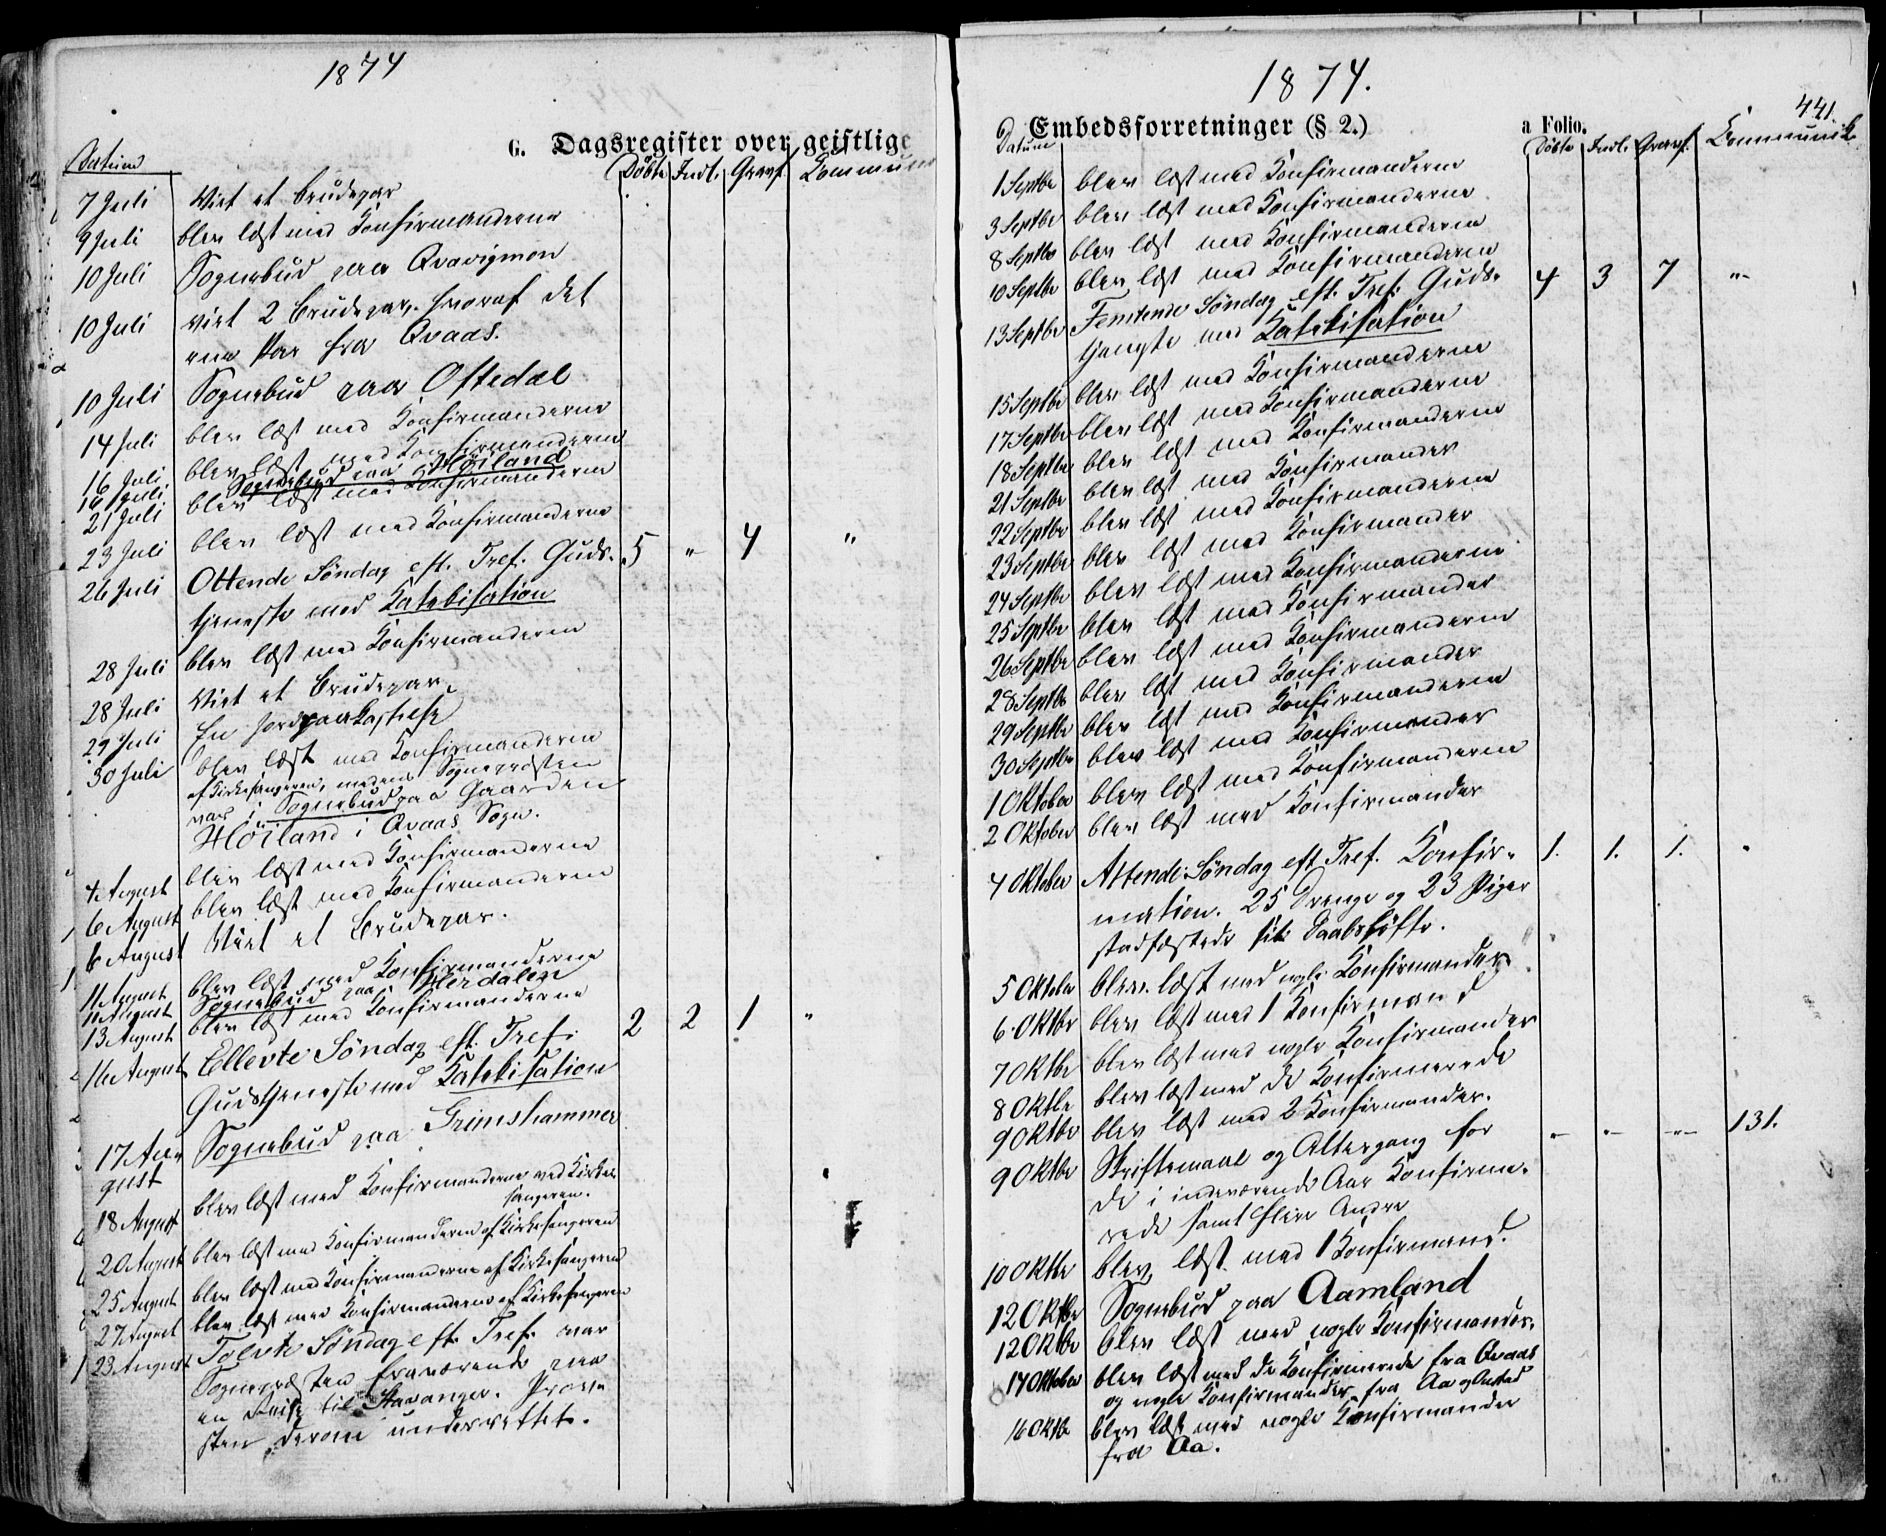 1874
G. Dagsregister over geistlige
Datum Døbte Indl. Gravf. Kommuni
7 Juli Viet et Brudepar
9 Juli blev læst med Konfirmanderne
10 Juli Sognebud paa Qvavigmoen
10 Juli viet 2 Brudepar, hvoraf det
ene Par fra Qvaas.
10 Juli Sognebud paa Oftedal
14 Juli blev læst med Konfirmanderne
16 Juli blev læst med Konfirmanderne
16 Juli Sognebud paa Høiland
21 Juli blev læst med Konfirmanderne
23 Juli blev læst med Konfirmanderne
26 Juli Ottende Søndag eft. Tref. Guds- 5 " 4 "
tjeneste med Katekisation
28 Juli blev læst med Konfirmanderne
28 Juli Viet et Brudepar
29 Juli En Jordpaakastelse
30 Juli blev læst med Konfirmanderne
af Kirkesangeren, medens Sognepræsten
var i Sognebud paa Gaarden
Høiland i Qvaas Sogn.
4 August blev læst med Konfirmanderne
6 August blev læst med Konfirmanderne
6 August Viet et Brudepar.
11 August blev læst med Konfirmanderne
11 August Sognebud paa Herdalen
13 August blev læst med Konfirmanderne
16 August Ellevte Søndag eft. Tref. 2 2 1 "
Gudstjeneste med Katekisation
17 Au-
gust Sognebud paa Grimshammer
18 August blev læst med Konfirmanderne ved Kirke-
sangeren.
20 August blev læst med Konfirmanderne af Kirkesangeren
25 August blev læst med Konfirmanderne af Kirkesangeren
27 August blev læst med Konfirmanderne af Kirkesangeren
23 August Tolvte Søndag eft. Tref. var
Sognepræsten fraværende paa
en Reise til Stavanger. Prov-
sten derom underrettet.
1874.
441.
Embedsforretninger (§ 2.)
a Folio.
Datum Døbte Indl. Gravf. Kommunik.
1 Septbr blev læst med Konfirmanderne
3 Septbr blev læst med Konfirmanderne
8 Septbr blev læst med Konfirmanderne
10 Septbr blev læst med Konfirmanderne
13 Septbr Femtende Søndag eft. Tref. Guds- 4 3 7 "
tjeneste med Katekisation
15 Septbr blev læst med Konfirmanderne
17 Septbr blev læst med Konfirmanderne
18 Septbr blev læst med Konfirmanderne
21 Septbr blev læst med Konfirmander
22 Septbr blev læst med Konfirmanderne
23 Septbr blev læst med Konfirmander
24 Septbr blev læst med Konfirmanderne
25 Septbr blev læst med Konfirmander
26 Septbr blev læst med Konfirmanderne
28 Septbr blev læst med Konfirmander
29 Septbr blev læst med Konfirmanderne
30 Septbr blev læst med Konfirmander
1 Oktober blev læst med Konfirmanderne
2 Oktober blev læst med Konfirmander
4 Oktober Attende Søndag eft Tref. Konfir- 1. 1. 1. "
mation. 25 Drenge og 23 Piger
stadfæstede sit Daabsløfte.
5 Oktober blev læst med nogle Konfirmander
6 Oktbr blev læst med 1 Konfirmand
7 Oktbr blev læst med nogle Konfirmander
8 Oktbr blev læst med de Konfirmerede
9 Oktbr blev læst med 2 Konfirmander.
9 Oktbr Skriftemaal og Altergang for " " " 131.
de i indeværende Aar Konfirme-
rede samt flere Andre
10 Oktbr blev læst med 1 Konfirmand.
12 Oktbr Sognebud paa Aamland
12 Oktbr blev læst med nogle Konfirmander.
14 Oktober blev læst med de Konfirmerede fra Qvaas
og nogle Konfirmander fra Aa og
16 Oktbr blev læst med nogle Konfirmander
fra Aa.